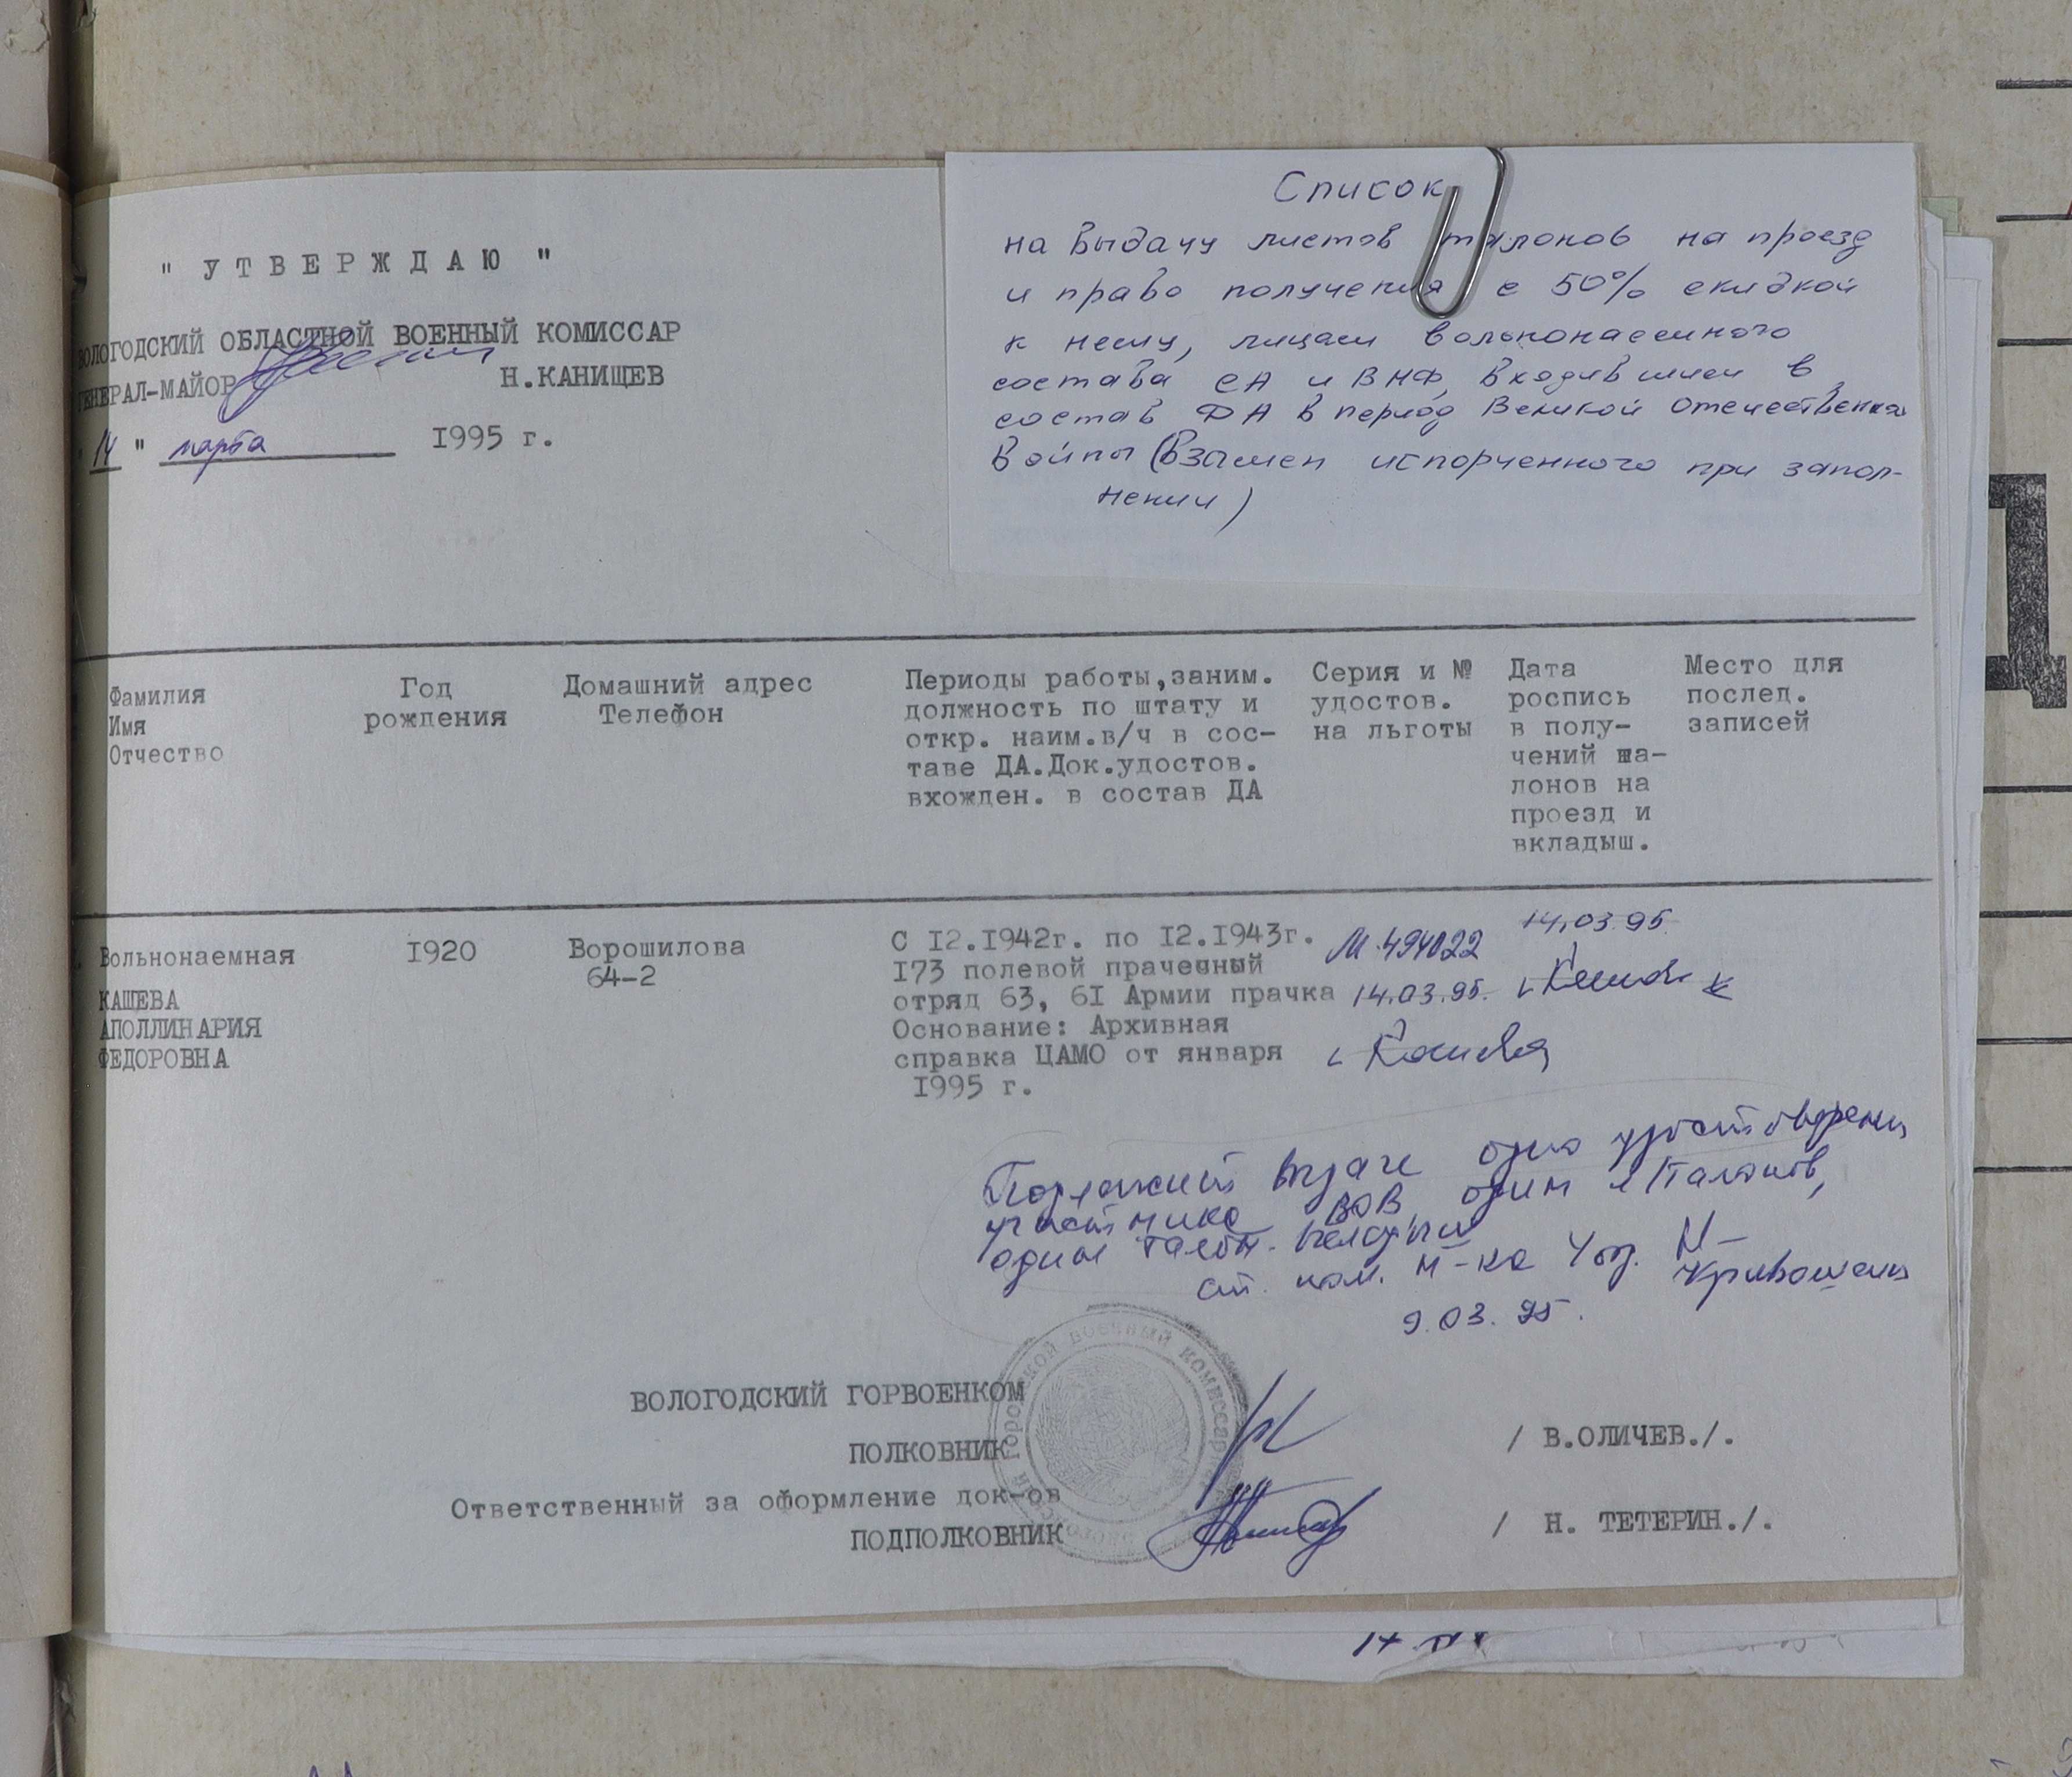 " УТВЕРЖДАЮ "
ВОЛОГОДСКИЙ ОБЛАСТНОЙ ВОЕННЫЙ КОМИССАР
ГЕНЕРАЛ-МАЙОР Н.КАНИЩЕВ
" 14 " марта 1995 г.
Список
на выдачу листов талонов на проезд
и право получения с 50% скидкой
к нему, лицам вольнонаемного
состава СА и ВМФ, входившим в
состав ДА в период Великой Отечественной
Войны (Взамен испорченного при запол-
нении)
Фамилия
Имя
Отчество
Год
рождения
Домашний адрес
Телефон
Периоды работы,заним.
должность по штату и
откр. наим.в/ч в сос-
таве ДА.Док.удостов.
вхожден. в состав ДА
Серия и №
удостов.
на льготы
Дата
роспись
в полу-
чений та-
лонов на
проезд и
вкладыш.
Место для
послед.
записей
Вольнонаемная
КАШЕВА
АПОЛЛИНАРИЯ
ФЕДОРОВНА
1920
Ворошилова
64-2
С 12.1942г. по 12.1943г.
173 полевой прачечный
отряд 63, 61 Армии прачка
Основание: Архивная
справка ЦАМО от января
1995 г.
М 494022
14.03.95.
14.03.95
Кашева
Подлежит выдаче одно удостоверение
участника ВОВ, один л/талонов,
один талон-вкладыш
ст. пом. н-ка 4 отд.
Кривошеин
9.03.95.
ВОЛОГОДСКИЙ ГОРВОЕНКОМ
ПОЛКОВНИК / В.ОЛИЧЕВ./.
Ответственный за оформление док-ов
ПОДПОЛКОВНИК / Н. ТЕТЕРИН./.